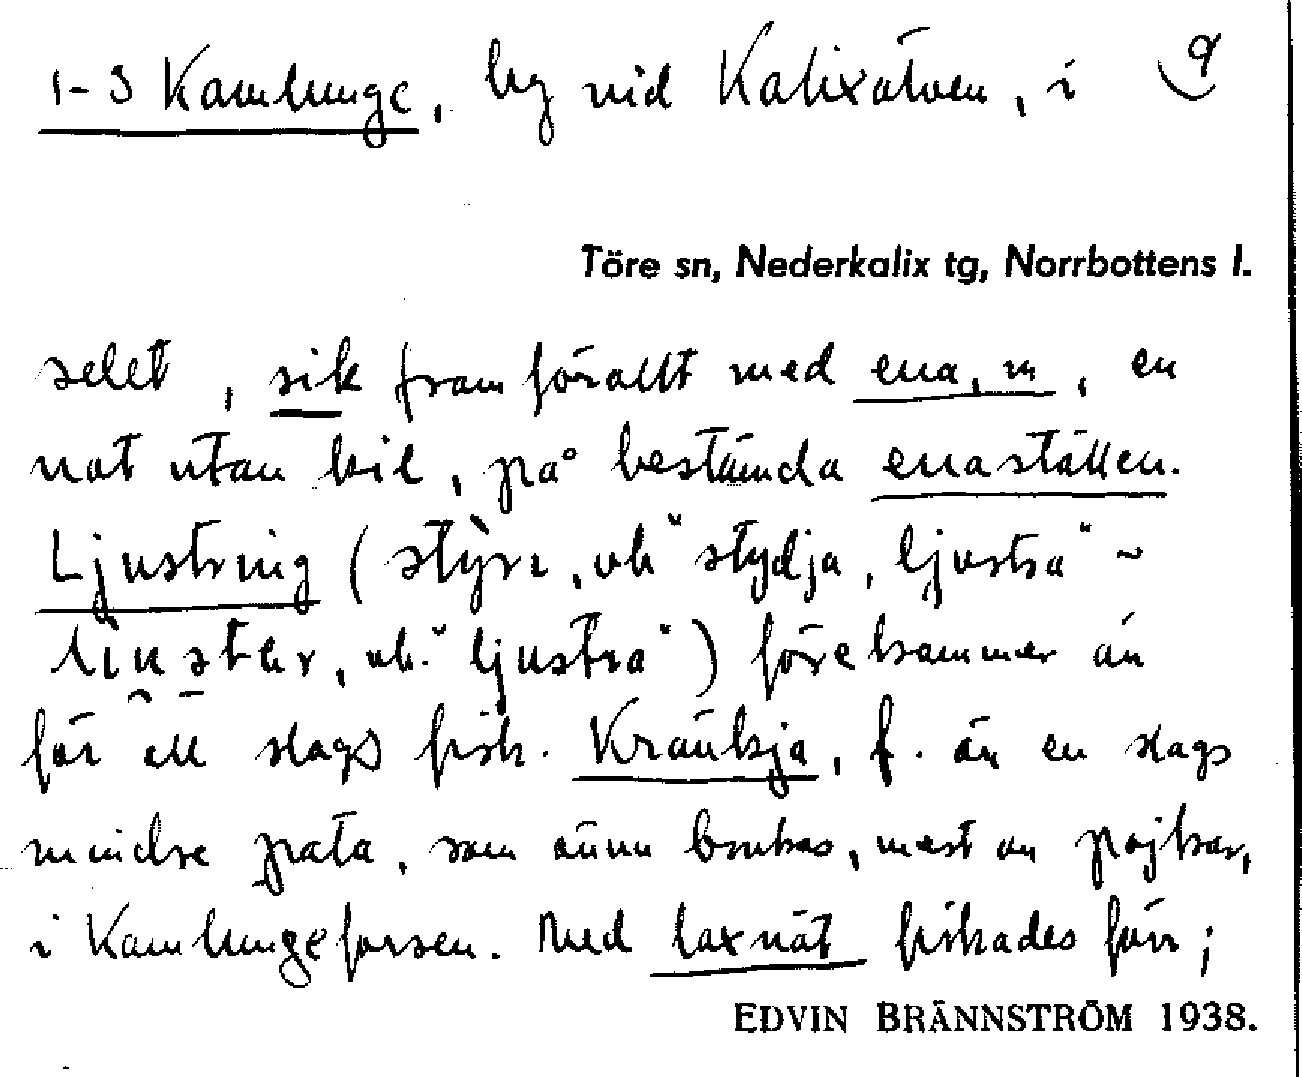 1-3 Kamlunge, by vid Kalixälven, i 9
Töre sn, Nederkalix tg, Norrbottens l.
selet, sik framförallt med ena, m, en
not utan kil, på bestämda enaställen.
Ljustring (stỳrı, vb "stydja, ljustra" ~
vb. "ljustra") förekommer än
för all slags fisk. Kräukja, f. är en slags
mindre pata, som ännu brukas, mest av pojkar,
i Kamlungeforsen. Med laxnät fiskades förr;
EDVIN BRÄNNSTRÖM 1938.